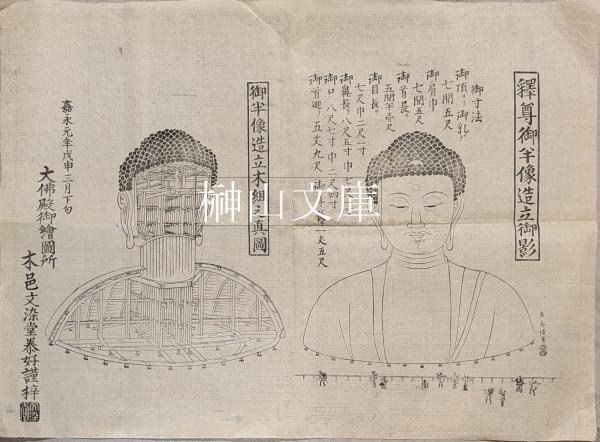 釋尊御半像造立御影
御寸法
御頂ヨリ御乳マデ
七間五尺
御肩巾
七間五尺
御首長サ
五間半壱尺
御目長サ
七尺巾二尺一寸
御鼻長サ八尺五寸巾七
御口八尺七寸巾二尺四寸
御首廻リ五丈九尺
一丈五尺
御半像造立木組之真圖
嘉永元年戊申三月下旬
大佛殿御繪圖所
木邑文染堂泰好謹梓
榊山文庫